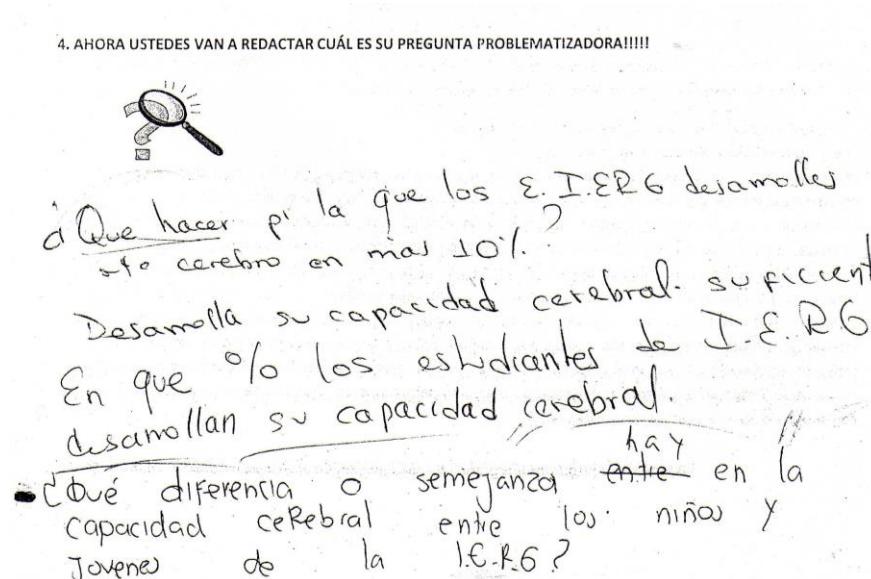 4. AHORA USTEDES VAN A REDACTAR CUÁL ES SU PREGUNTA PROBLEMATIZADORA!!!!!
¿Que hacer p' la que los E. I.ER6 desarrolles
cerebro en mas 10%?
Desarrolla su capacidad cerebral. suficient
En que % los estudiantes de I.E.R6
desarrollan su capacidad cerebral
hay
¿Qué diferencia o semejanza entre en la
capacidad ceRebral entre los niños y
Jovenes de la I.E.R.6?